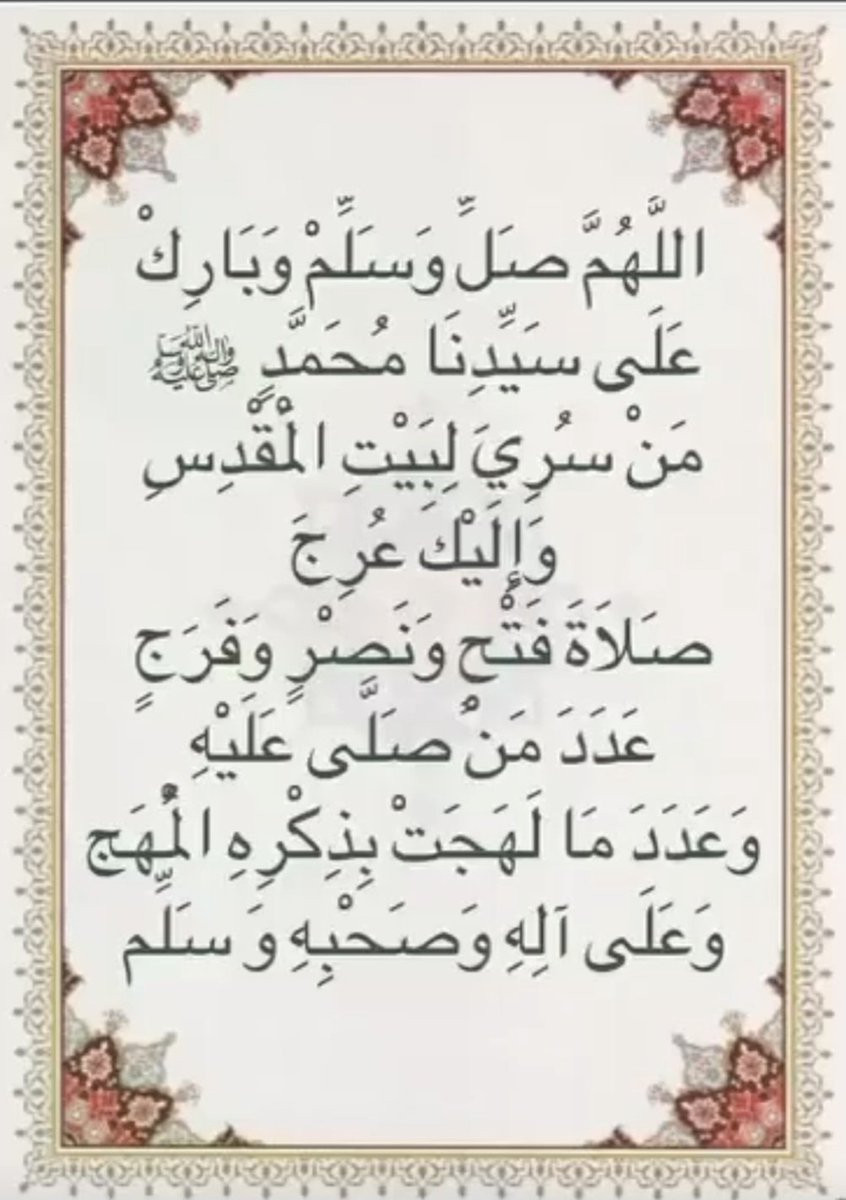 اللَّهُمَّ صَلِّ وَسَلِّمْ وَبَارِكْ
عَلَى سَيِّدِنَا مُحَمَّدٍ ﷺ
مَنْ سُرِيَ لِبَيْتِ الْمَقْدِسِ
وَإِلَيْكَ عُرِجَ
صَلَاةَ فَتْحٍ وَنَصْرٍ وَفَرَجٍ
عَدَدَ مَنْ صَلَّى عَلَيْهِ
وَعَدَدَ مَا لَهَجَتْ بِذِكْرِهِ الْمُهَج
وَعَلَى آلِهِ وَصَحْبِهِ وَ سَلِّم